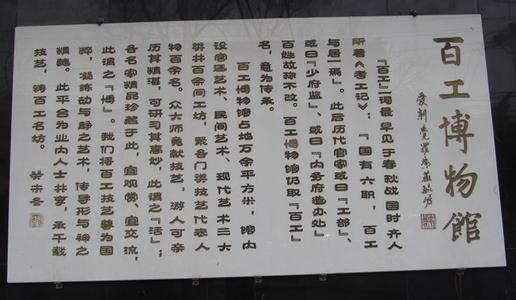 百工博物館
『百工』一词最早见于春秋战国时齐人
所著《考工记》：『国有六职，百工
与居一焉』。此后历代官家或曰『工部』、
或曰『少府监』、或曰『内务府造办处』，
百姓故称不改。百工博物馆仍取『百工』
名，意为传承。
百工博物馆占地万余平方米，馆内
设宫廷艺术、民间艺术、现代艺术三大
类共百余间工坊，聚各门类技艺代表人
物百余名。众大师竞献技艺，游人可亲
历其精湛，可研习其高妙，此谓之『活』；
各名家精品珍藏于此，宜观赏、宜交流，
此谓之『博』。我们将百工技艺尊为国
粹，凝练动与静之艺术，传导形与神之
精髓。此平台为业内人士共享，承千载
技艺，铸百工名坊。
癸未冬